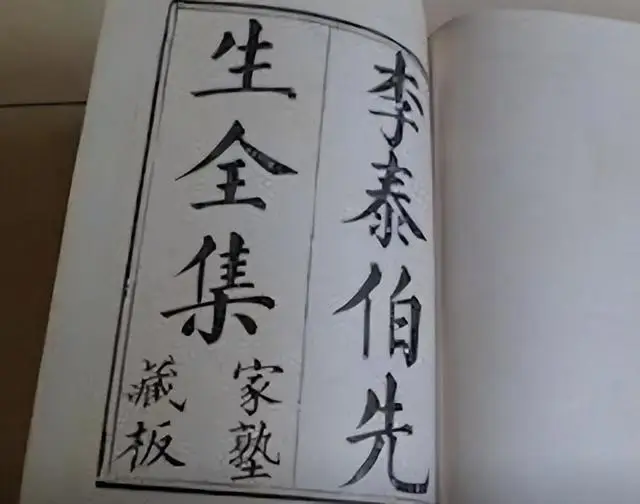 李泰伯先
生全集
家塾
藏板